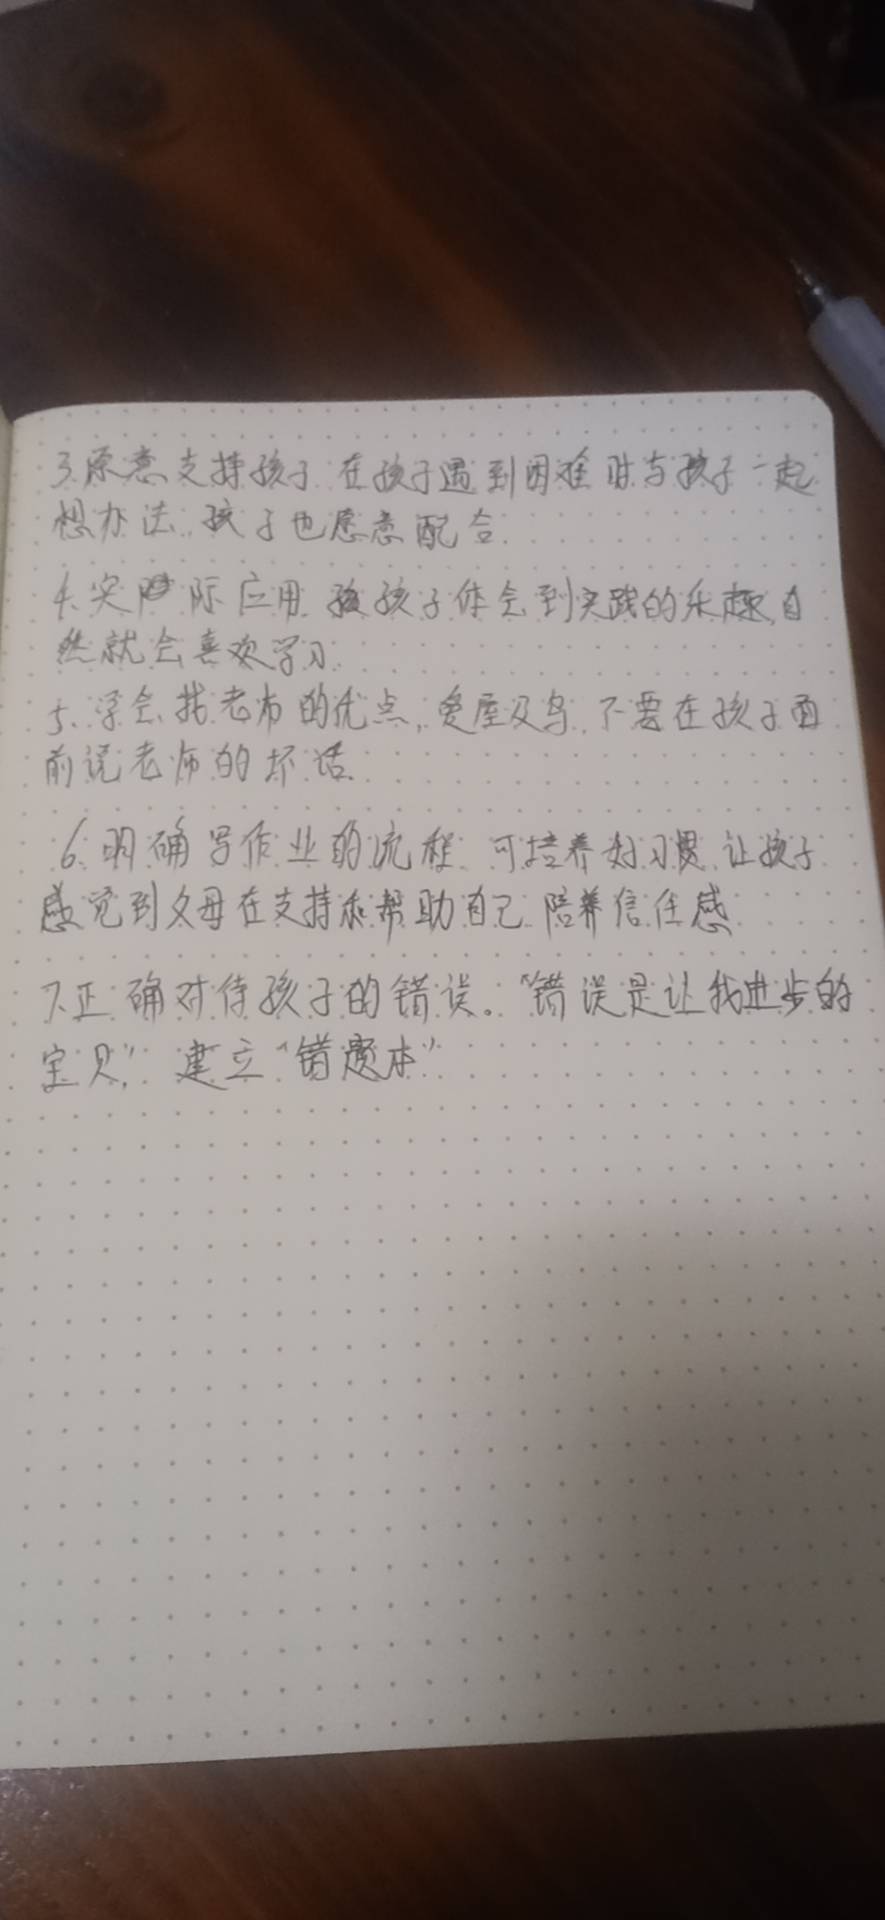 3.愿意支持孩子.在孩子遇到困难时与孩子一起
想办法.孩子也愿意配合.
4.实际应用.孩子体会到实践的乐趣,自
然就会喜欢学习.
5.学会找老师的优点,爱屋及乌.不要在孩子面
前说老师的坏话.
6.明确写作业的流程.可培养好习惯.让孩子
感觉到父母在支持和帮助自己.陪养信任感
7.正确对待孩子的错误。“错误是让我进步的
宝贝”,建立“错题本”